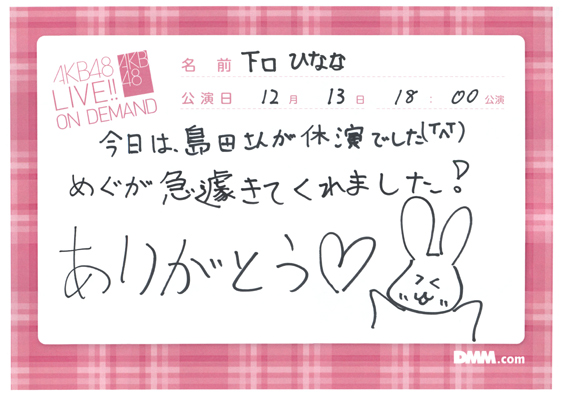 AKB48
LIVE!!
ON DEMAND
AKB
48
名 前 下口 ひなな
公演日 12月 13日 18:00公演
今日は、島田さんが休演でした(T^T)
めぐが急遽きてくれました!
ありがとう♡
DMM.com